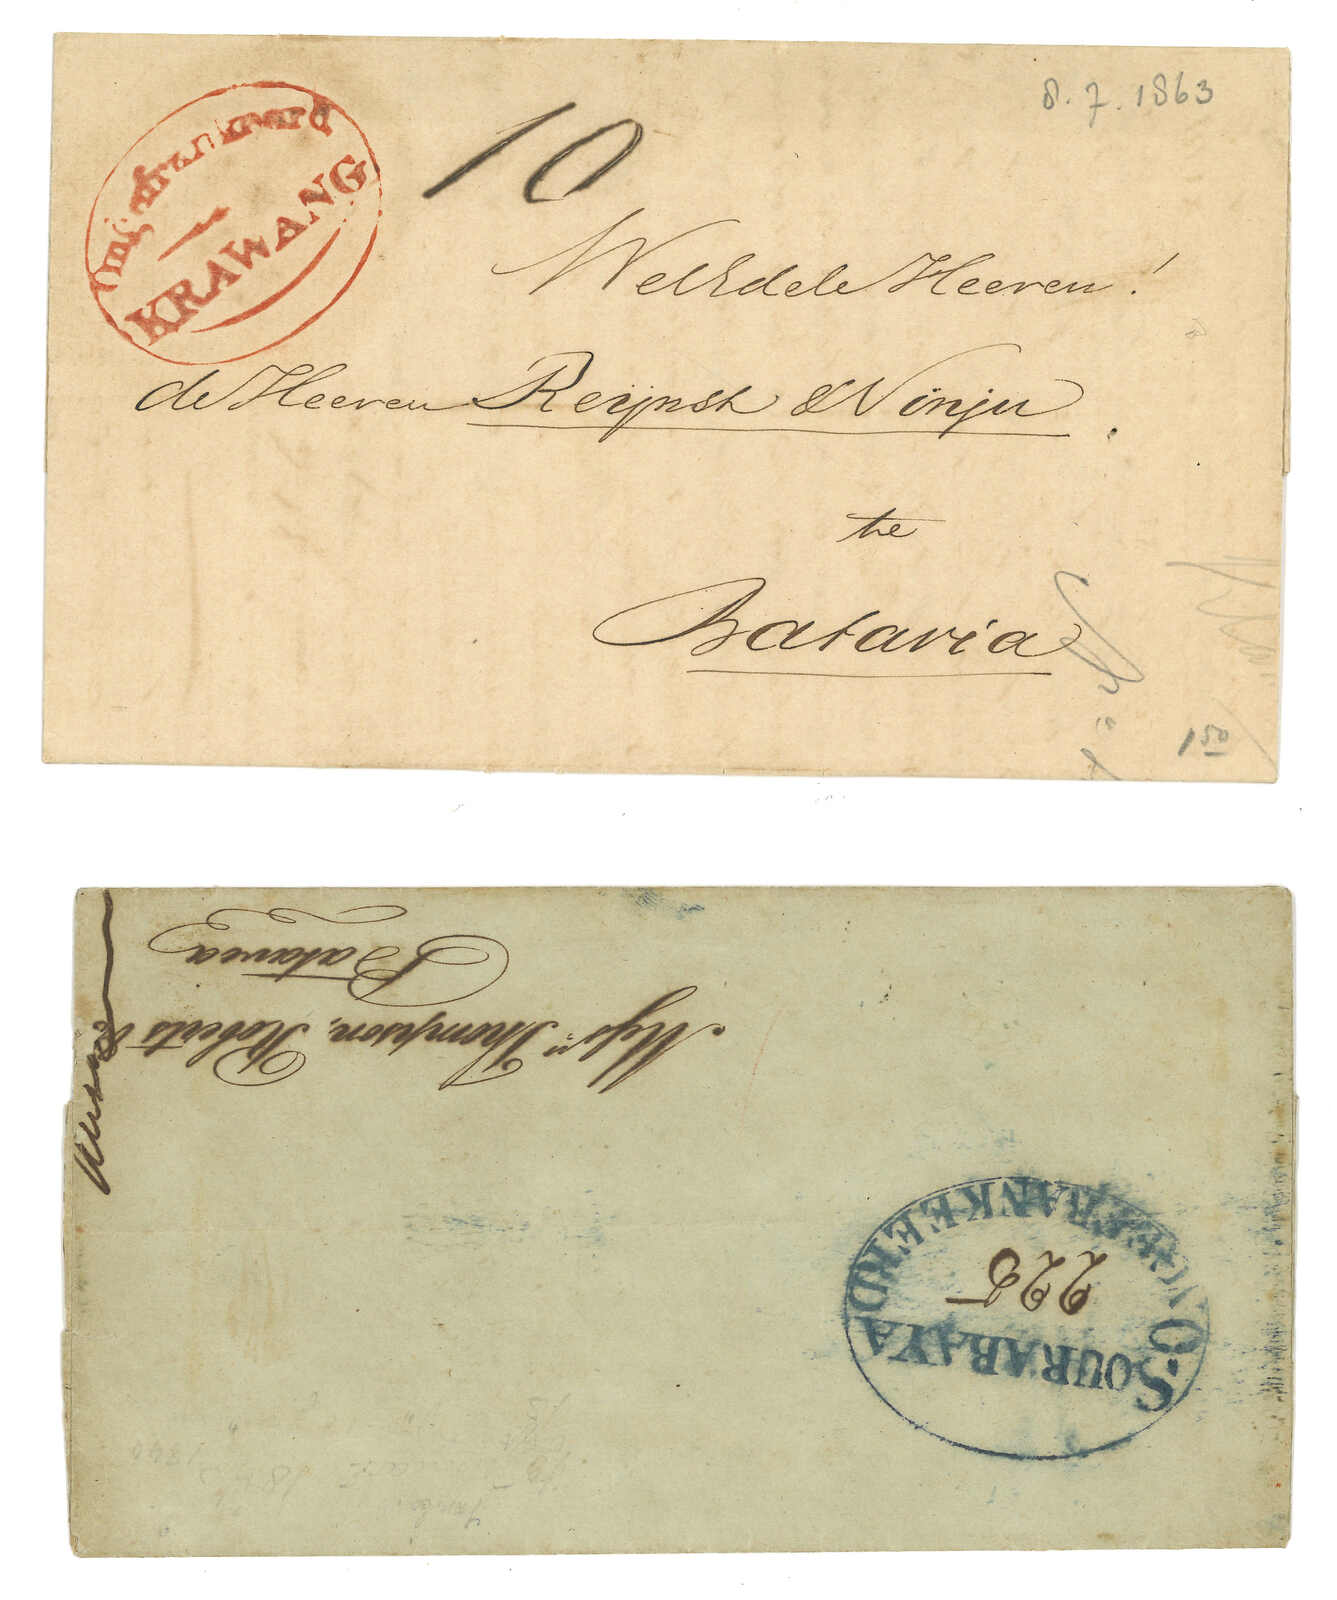 8.7.1863
KRAWANG
10
WelEdele Heeren!
de Heeren Reijnst & Vinju
te
Batavia
1 50
Messrs Thompson, Roberts &
Batavia
ONGEFRANKEERD
225
SOURABAYA